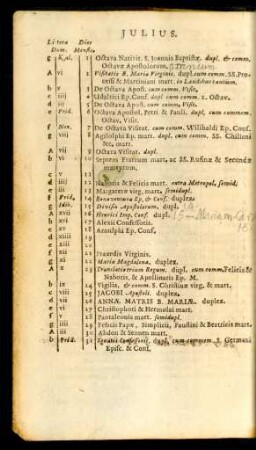 JULIUS.
Litera Dies
Dom. Mensis.
g Kal. 1 Octava Nativit. S. Joannis Baptistæ. dupl. & comm.
Octavæ Apostolorum.
A vj 2 Visitatio B. Mariæ Virginis. dupl. cum comm. SS. Pro-
cessi & Martiniani mart. in Landshut tantùm.
b v 3 De Octava Apost. cum comm. Visit.
c iiij 4 Udalrici Ep. Conf. dupl. cum comm. 2. Octav.
d iij 5 De Octava Apost. cum comm. Visit.
e Prid. 6 Octava Apostol. Petri & Pauli. dupl. cum commem.
Octav. Visit.
f Non. 7 De Octava Visitat. cum comm. Willibaldi Ep. Conf.
g viij 8 Agilolphi Ep. mart. dupl. cum comm. SS. Chiliani
&c. mart.
A vij 9 Octava Visitat. dupl.
b vj 10 Septem Fratrum mart. ac SS. Rufinæ & Secundæ
martyrum.
c v 11
d iiij 12 Naboris & Felicis mart. extra Metropol. semid.
e iij 13 Margaretæ virg. mart. semidupl.
f Prid. 14 Bonaventuræ Ep. & Conf. duplex.
g Idib. 15 Divisio Apostolorum. dupl.
A xvij 16 Henrici Imp. Conf. dupl.
b xvj 17 Alexii Confessoris.
c xv 18 Arnulphi Ep. Conf.
d xiiij 19
e xiij 20
f xij 21 Praxedis Virginis.
g xj 22 Mariæ Magdalenæ. duplex.
A x 23 Translatio trium Regum. dupl. cum comm. Felicis &
Naboris, & Apollinaris Ep. M.
b ix 24 Vigilia, & comm. S. Christinæ virg. & mart.
c viij 25 JACOBI Apostoli. duplex.
d vij 26 ANNÆ MATRIS B. MARIÆ. duplex.
e vj 27 Christophori & Hermolai mart.
f v 28 Pantaleonis mart. semidupl.
g iiij 29 Felicis Papæ, Simplicii, Faustini & Beatricis mart.
A iij 30 Abdon & Sennen mart.
b Prid. 31 Ignatii Confessoris, dupl. cum commem. S. Germani
Episc. & Conf.